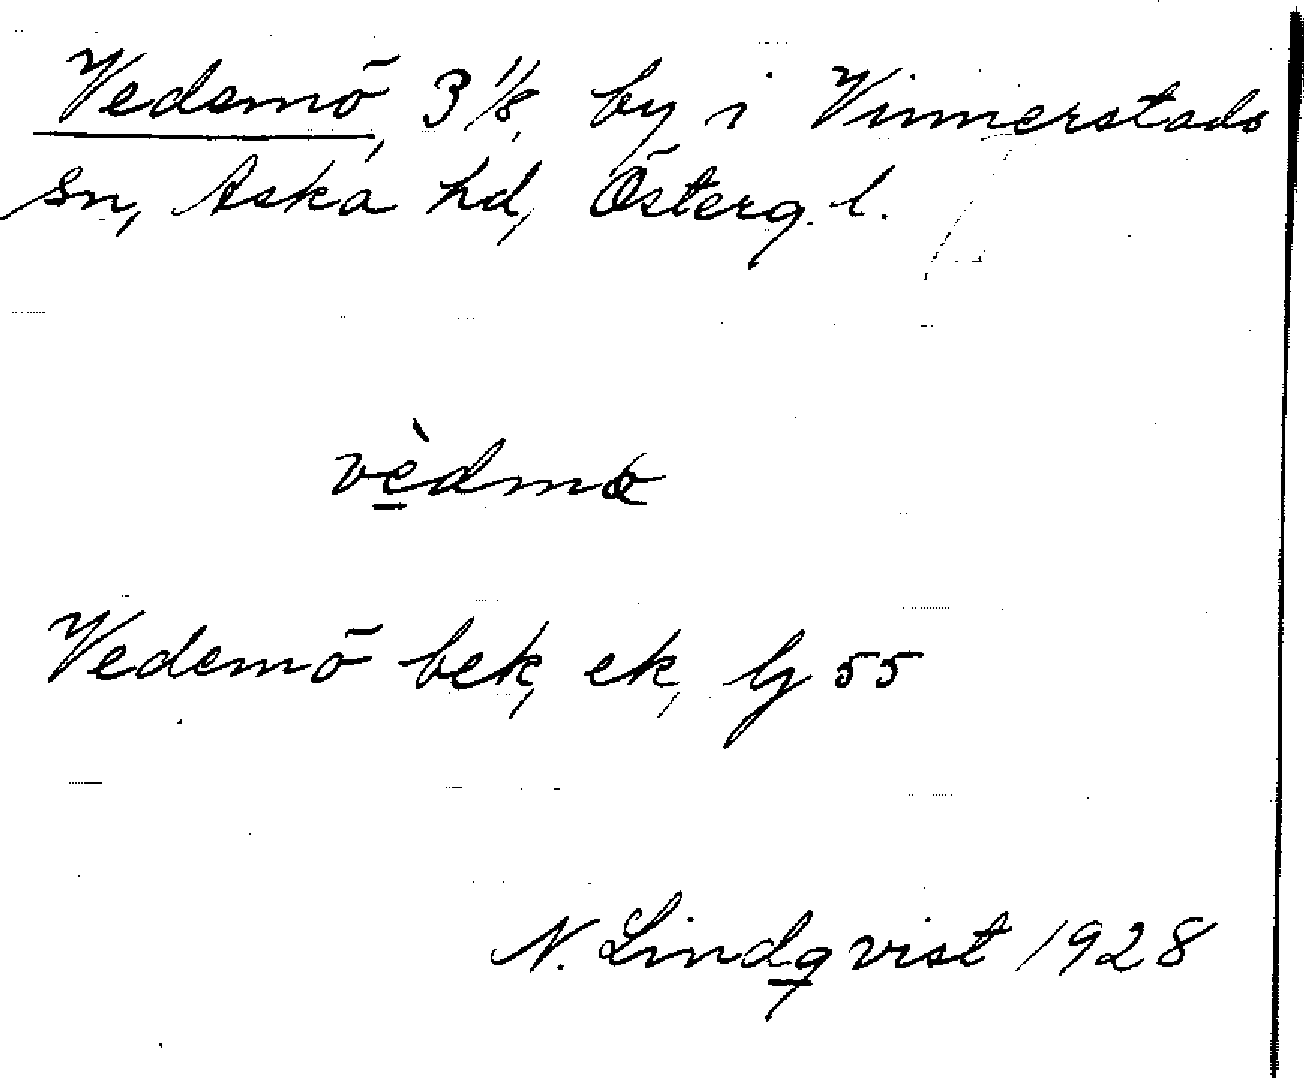 Vedemö, 3 1/8, by i Vinnerstads
sn, Aska hd, Österg. l.
vèdmö
Vedemö bek, ek, lj 55
N. Lindqvist 1928